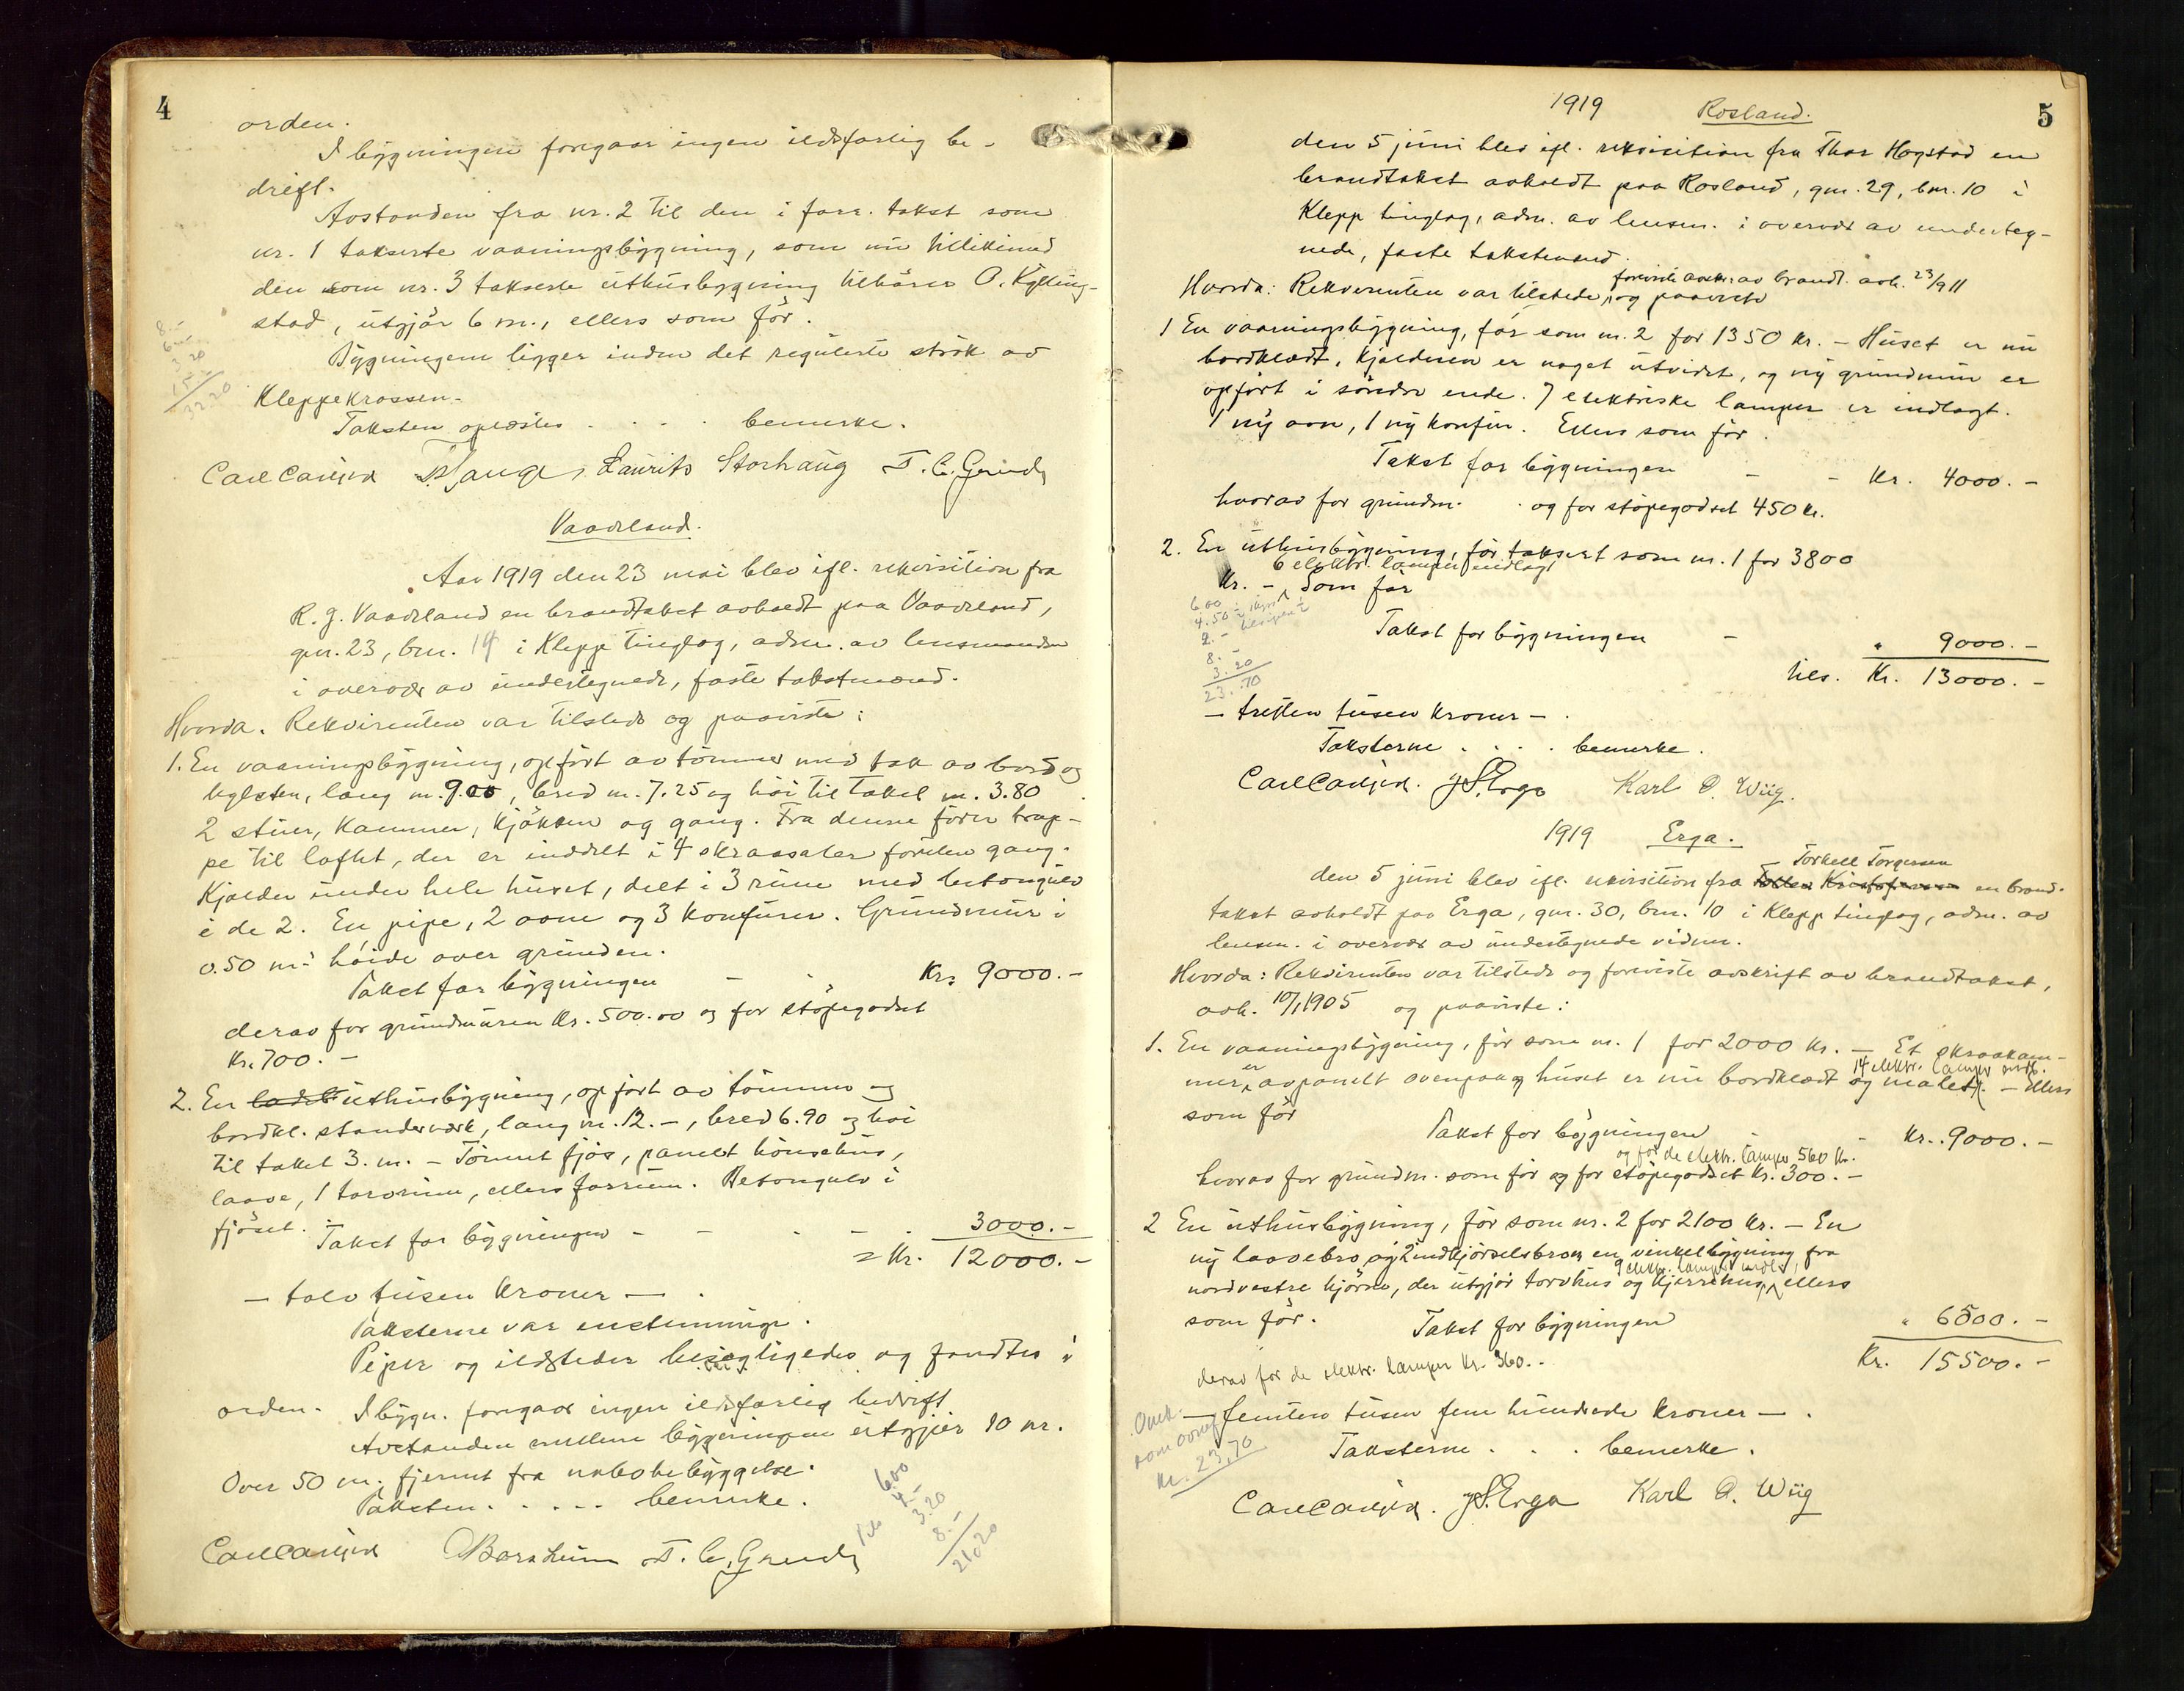 4
orden.
I bygningen foregaar ingen ildsfarlig be-
drift.
Avstanden fra nr. 2 til den i forr. takst som
nr. 1 takserte vaaningsbygning, som nu tillikemed
den som nr. 3 takserte uthusbygning tilhører O. Kylling-
stad, utgjør 6 m., ellers som før.
Bygningene ligger inden det regulerte strøk av
Kleppekrossen.
Taksten oplæstes . . . . bemerke.
Laurits Storhaug
8.-
6.-
3.20
15.-
32.20
Vaarland.
Aar 1919 den 23 mai blev ifl. rekvisition fra
R. J. Vaarland en brandtakst avholdt paa Vaarland,
gnr. 23, bnr. 14 i Klepp tinglag, adm. av lensmanden
i overvær av undertegnede, faste takstmænd.
Hvorda. Rekvirenten var tilstede og paaviste:
1. En vaaningsbygning, opført av tømmer med tak av bord og
teglsten, lang m. 9.00, bred m. 7.25 og høi til taket m. 3.80.
2 stuer, kammer, kjøkken og gang. Fra denne fører trap-
pe til loftet, der er inddelt i 4 skraasaler foruten gang.
Kjælder under hele huset, delt i 3 rum med betongulv
i de 2. En pipe, 2 ovne og 3 komfurer. Grundmur i
0.50 m.s høide over grunden.
Takst for bygningen - . Kr. 9000.-
derav for grundmuren Kr. 500.00 og for støpegodset
Kr. 700.-
2. En uthusbygning, opført av tømmer og
bordkl. standerværk, lang m. 12.-, bred 6.90 og høi
til taket 3. m. - Tømret fjøs, panelt hønsehus,
laave, 1 torvrum, ellers forrum. Betongulv i
fjøset. Takst for bygningen - - . - . 3000.-
= Kr. 12000.-
- tolv tusen kroner - .
Taksterne var enstemmige.
Piper og ildsteder besigtigedes og fandtes i
orden. I bygn. foregaar ingen ildsfarlig bedrift.
Avstanden mellem bygningene utgjør 10 m.
Over 50 m. fjernet fra nabobebyggelse.
Taksten . . . . . bemerke.
6.00
4.-
3.20
8.-
21.20
5
1919 Rosland.
den 5 juni blev ifl. rekvisition fra Thor Hogstad en
brandtakst avholdt paa Rosland, gnr. 29, bnr. 10 i
Klepp tinglag, adm. av lensm. i overvær av underteg-
nede, faste takstmænd.
foreviste avskr. av brandt. avh. 23/9 11
Hvorda: Rekvirenten var tilstede, og paaviste
1 En vaaningsbygning, før som nr. 2 for 1350 kr. - Huset er nu
bordklædt, kjælderen er noget utvidet, og ny grundmur er
opført i søndre ende. 7 elektriske lamper er indlagt.
1 ny ovn, 1 ny komfur. Ellers som før.
Takst for bygningen - - Kr. 4000.-
hvorav for grundm. . og for støpegodset 450 kr.
2. En uthusbygning, før taksert som nr. 1 for 3800
6 elektr. lamper indlagt
Kr. - Som før
Takst for bygningen - " 9000.-
tils. Kr. 13000.-
6.00
4.50
2.-
8.-
3.20
23.70
- tretten tusen kroner - .
Taksterne . . . . bemerke.
Karl O. Wiig.
1919 Erga.
Torkell Torgersen
den 5 juni blev ifl. rekvisition fra en brand-
takst avholdt paa Erga, gnr. 30, bnr. 10 i Klepp tinglag, adm. av
lensm. i overvær av undertegnede vidner.
Hvorda: Rekvirenten var tilstede og foreviste avskrift av brandtakst,
avh. 10/1 1905 og paaviste:
1. En vaaningsbygning, før som nr. 1 for 2000 kr. - Et skraakam-
14 elektr. lamper indl.
mer er avpanelt ovenpaa og huset er nu bordklædt og malet. - Ellers
som før
Takst for bygningen - - Kr. 9000.-
og for de elektr. lamper 560 kr.
hvorav for grundm. som før og for støpegodset kr. 300.-
2 En uthusbygning, før som nr. 2 for 2100 kr. - En
ny laavebro, og 2 indkjørselsbroer, en vinkelbygning fra
9 elektr. lamper indl.,
nordvestre hjørne, der utgjør torvhus og kjerrehus, ellers
som før. Takst for bygningen " 6500.-
derav for de elektr. lamper kr. 360.- Kr. 15500.-
- femten tusen fem hundrede kroner - .
Omk.
som ovenf.
kr. 23,70
Taksterne . . . bemerke.
Karl O. Wiig